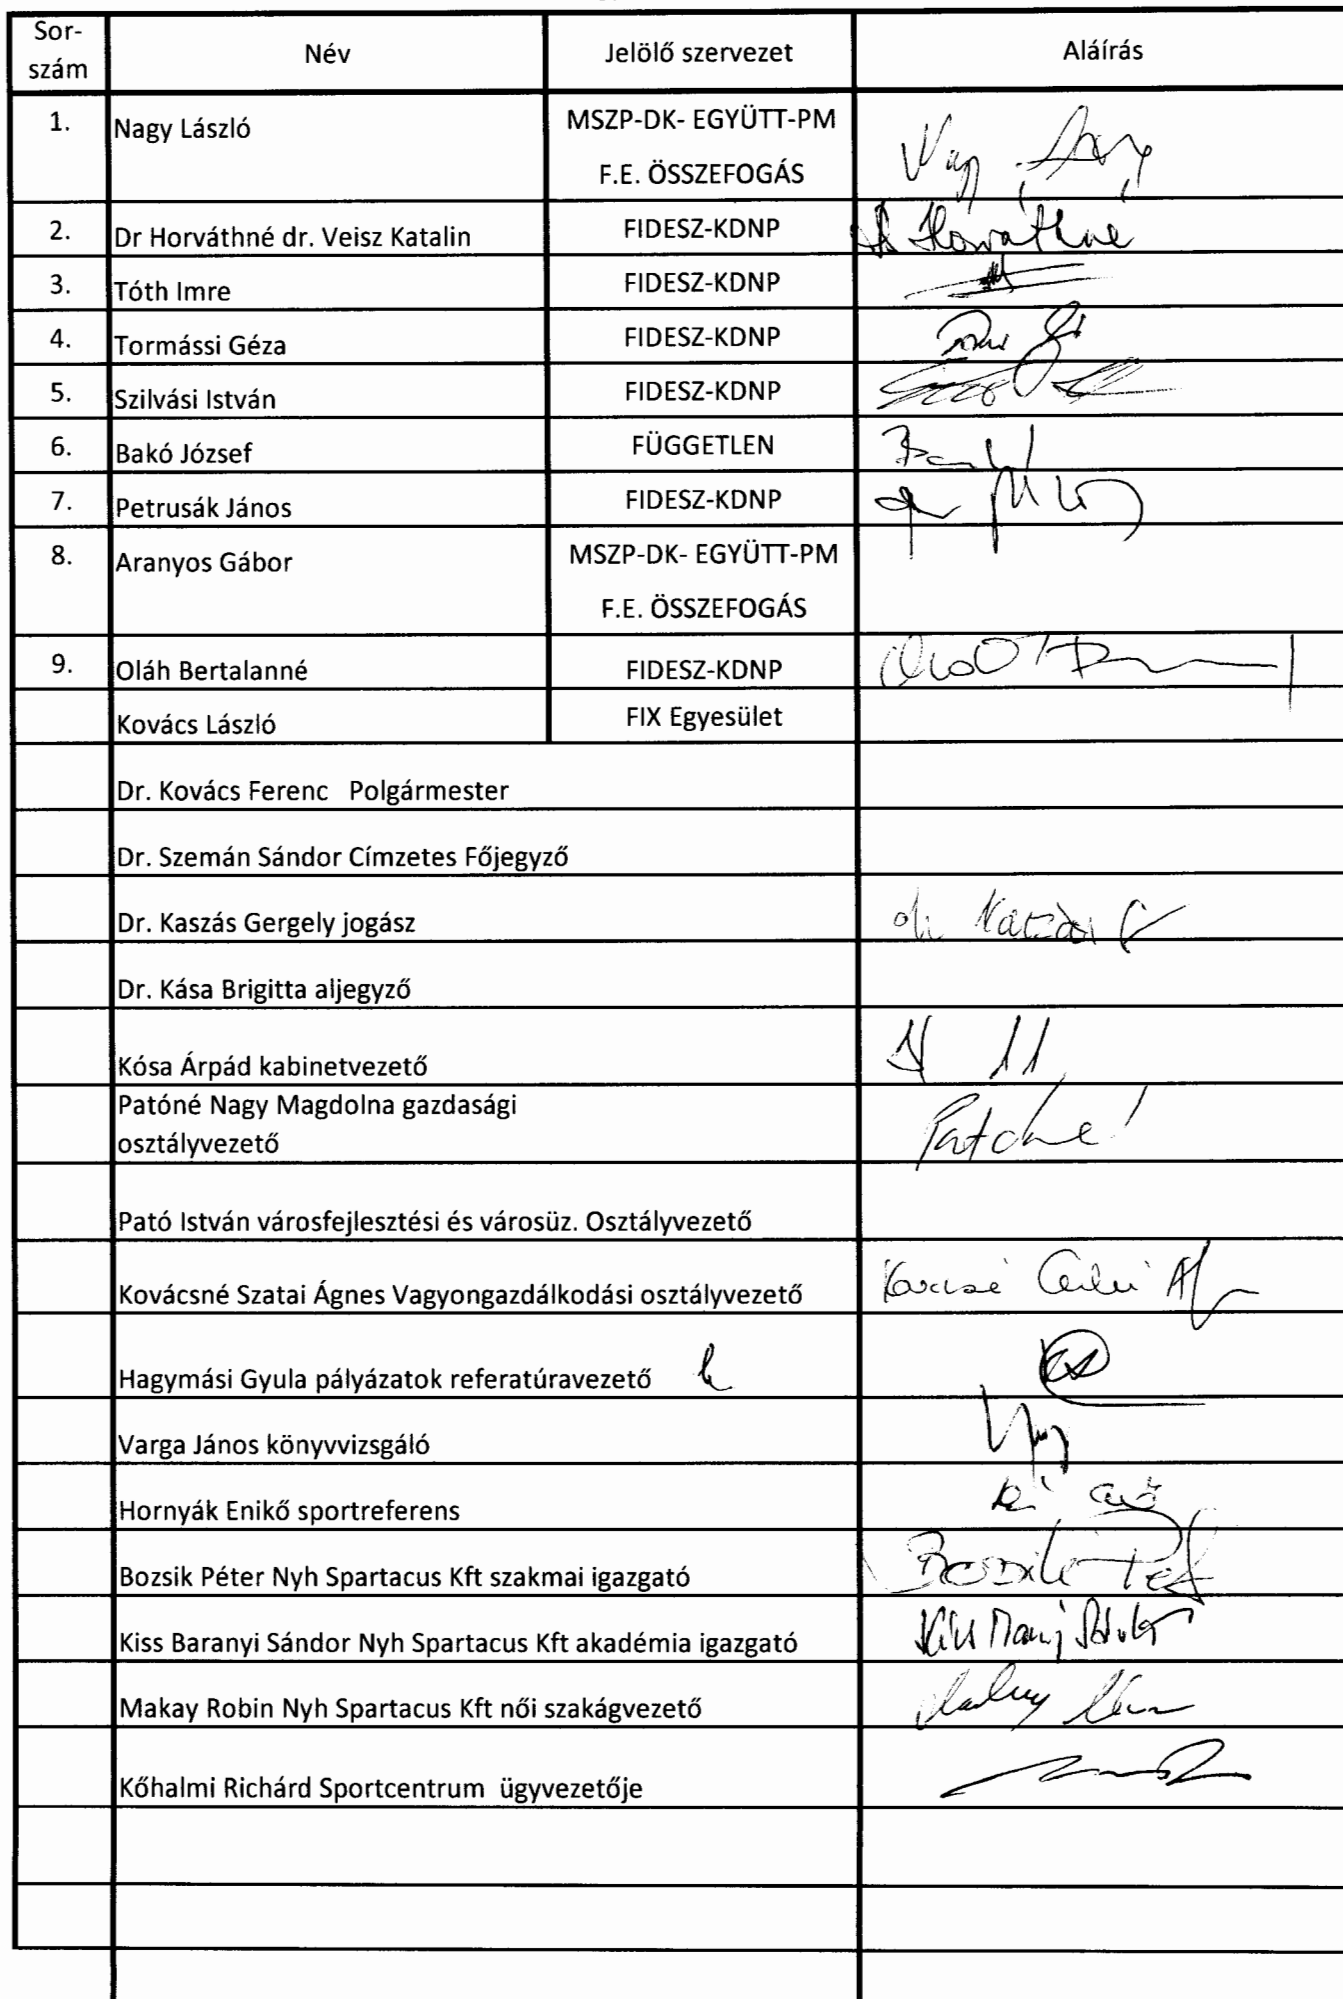 Sor-
szám Név Jelölő szervezet Aláírás
1. Nagy László MSZP-DK- EGYÜTT-PM
F.E. ÖSSZEFOGÁS
2. Dr Horváthné dr. Veisz Katalin FIDESZ-KDNP Horváthné
3. Tóth Imre FIDESZ-KDNP
4. Tormássi Géza FIDESZ-KDNP
5. Szilvási István FIDESZ-KDNP
6. Bakó József FÜGGETLEN
7. Petrusák János FIDESZ-KDNP
8. Aranyos Gábor MSZP-DK- EGYÜTT-PM
F.E. ÖSSZEFOGÁS
9. Oláh Bertalanné FIDESZ-KDNP
Kovács László FIX Egyesület
Dr. Kovács Ferenc Polgármester
Dr. Szemán Sándor Címzetes Főjegyző
Dr. Kaszás Gergely jogász
Dr. Kása Brigitta aljegyző
Kósa Árpád kabinetvezető
Patóné Nagy Magdolna gazdasági
osztályvezető Patóné
Pató István városfejlesztési és városüz. Osztályvezető
Kovácsné Szatai Ágnes Vagyongazdálkodási osztályvezető
Hagymási Gyula pályázatok referatúravezető
Varga János könyvvizsgáló
Hornyák Enikő sportreferens
Bozsik Péter Nyh Spartacus Kft szakmai igazgató
Kiss Baranyi Sándor Nyh Spartacus Kft akadémia igazgató
Makay Robin Nyh Spartacus Kft női szakágvezető
Kőhalmi Richárd Sportcentrum ügyvezetője